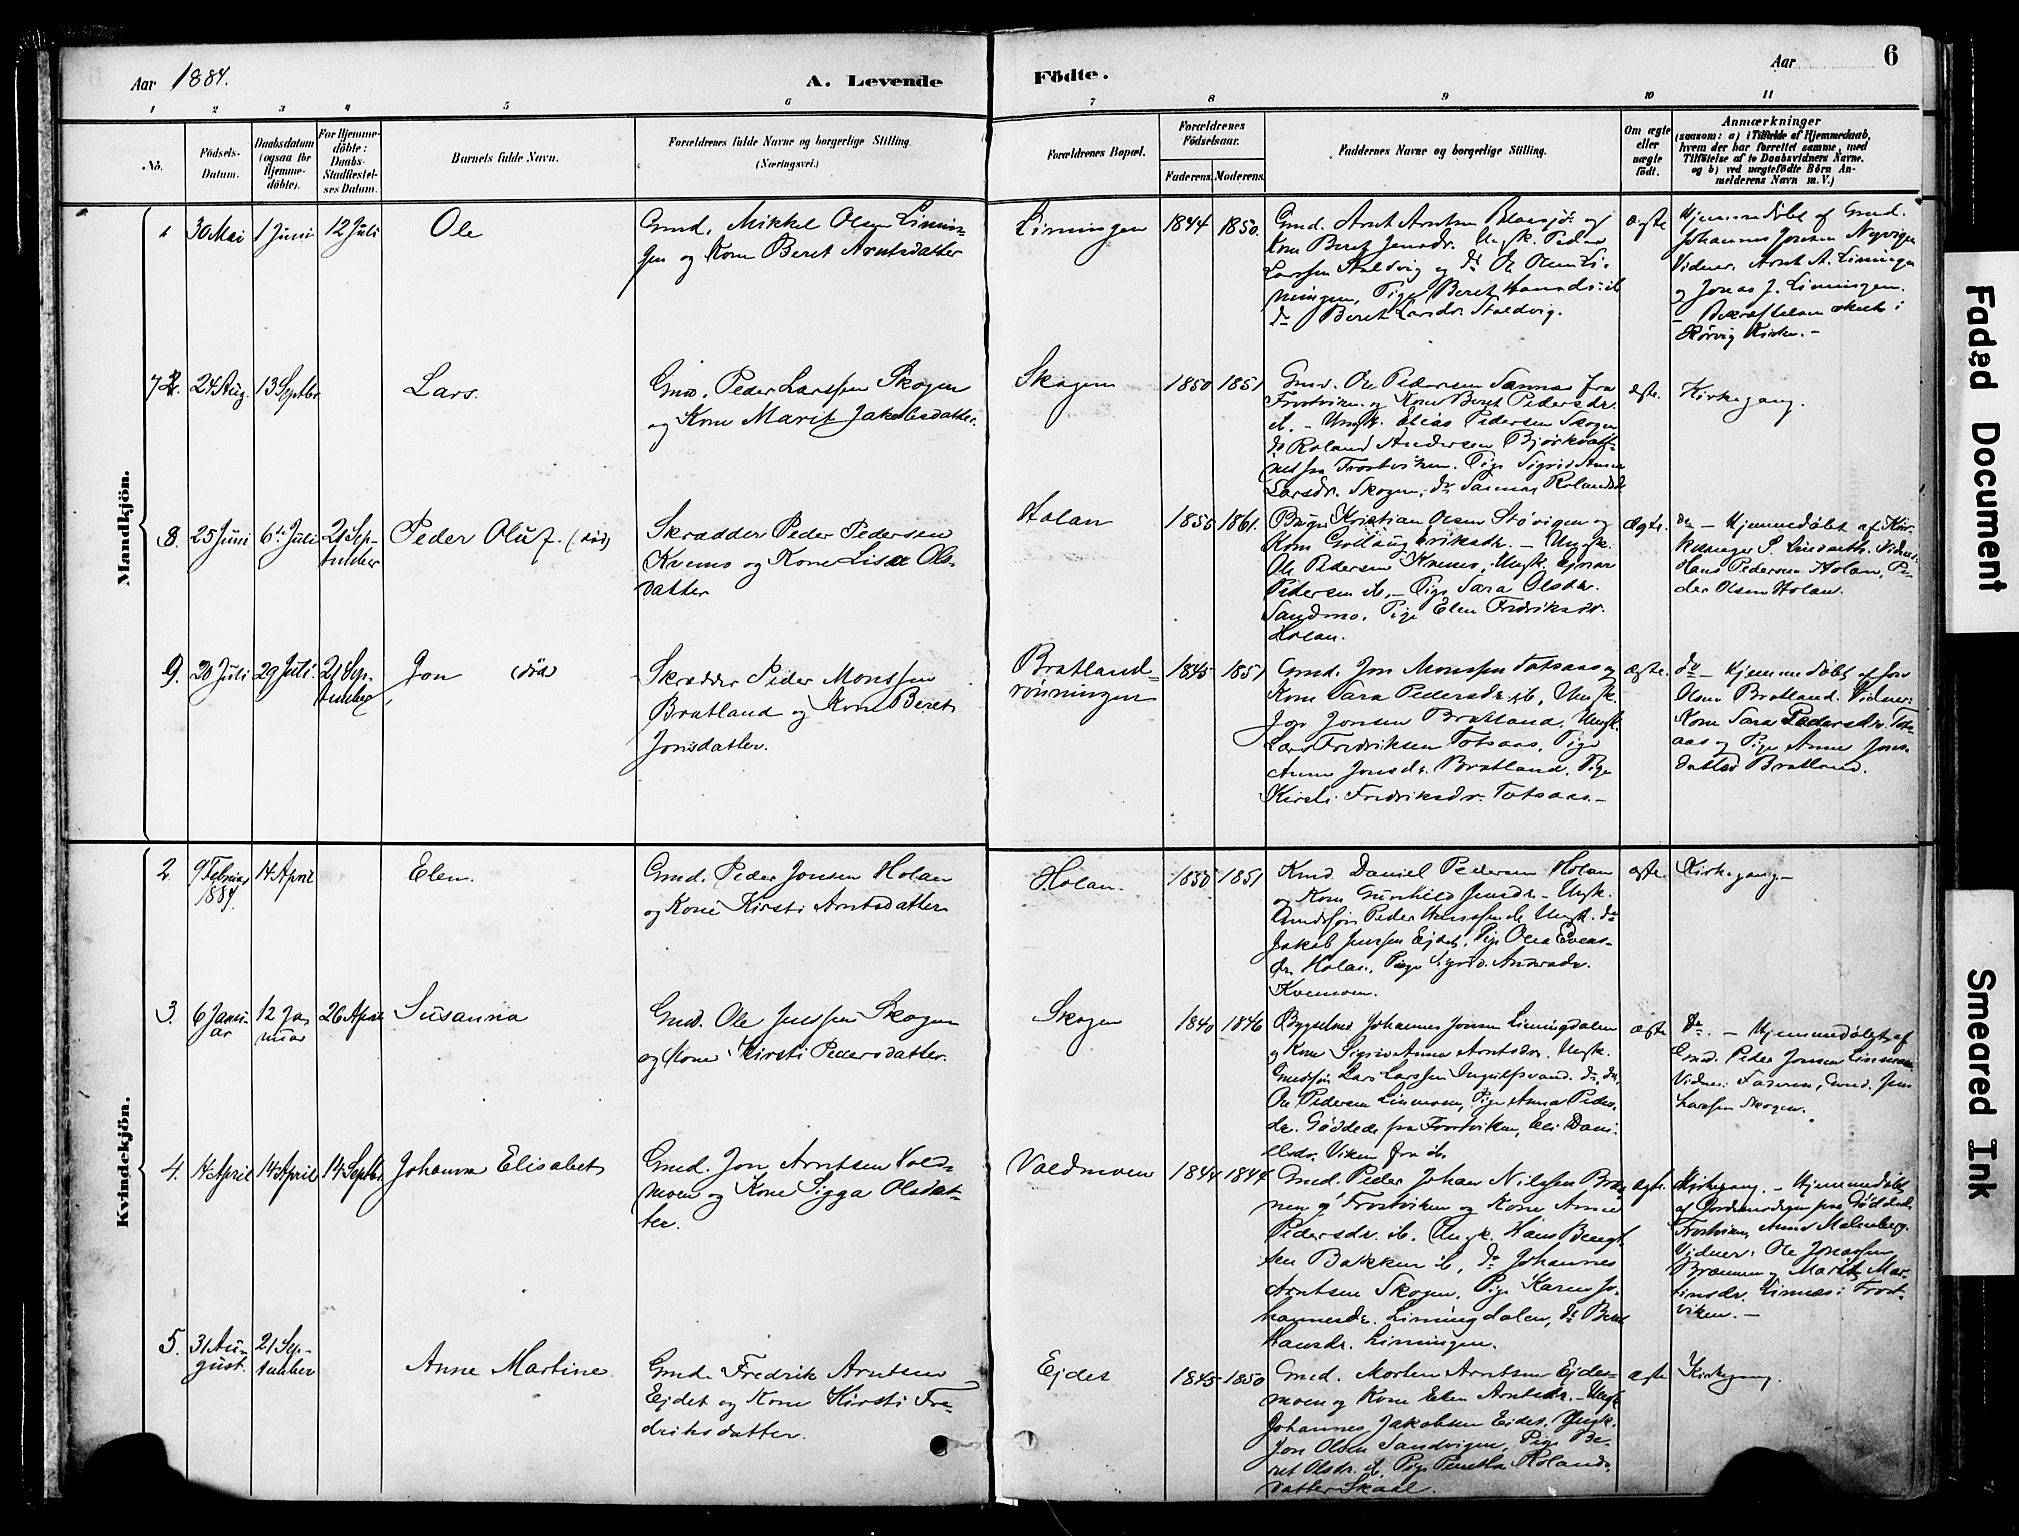 Aar 1884.
A. Levende
Födte.
Aar
6
1 2 3 4 5 6 7 8 9 10 11
No.
Födsels-
Datum.
Daabsdatum
(ogsaa for
Hjemme-
döbte).
For Hjemme-
döbte:
Daabs-
Stadfæstel-
ses Datum.
Barnets fulde Navn.
Forældrenes fulde Navne og borgerlige Stilling.
(Næringsvei.)
Forældrenes Bopæl.
Forældrenes
Födselsaar.
Faderens.
Moderens.
Faddernes Navne og borgerlige Stilling.
Om ægte
eller
uægte
födt.
Anmærkninger
(saasom: a) i Tilfælde af Hjemmedaab,
hvem der har forrettet samme, med
Tilföielse af to Daabsvidners Navne.
og b) ved uægtefödte Börn An-
melderens Navn m.V.)
Mandkjön.
30 Mai
1 Juni
12 Juli
Ole
Gmd. Mikkel Olsen Limin-
gen og Kone Beret Arntsdatter
Limingen
1844
1850.
Gmd. Arnt Arntsen og
Kone Beret Jensdr. Ungk. Peder
Larssen Staldvig og do Ole Olsen Li-
mingen, Pige Beret Hansdr. ib
do Beret Larsdr. Staldvig.
ægte
Hjemmedöbt af Gmd.
Johannes Jonsen Nyvigen
Vidner: Arnt A. Limingen
og Jonas J. Limingen.
– Bekræftelsen skeet i
Rörvig Kirke. –
7
24 Aug.
13 Septbr
Lars.
Gmd. Peder Larssen Skogen
og Kone Marit Jakobsdatter.
Skogen
1850
1851
Gmd. Ole Pedersen Sannas fra
Frostviken og Kone Beret Pedersdr.
ib. – Ungk. Elias Pedersen Skogen
do Roland Andersen Bjørkvatt-
net fra Frostviken. Pige Sigrid Anna
Larsdr. Skogen, do Rolandsdr
ægte.
Kirkegang.
8.
25 Juni
6te Juli
21 Sep-
tember
Peder Oluf. (död)
Skrædder Peder Pedersen
Kvemo og Kone Lisa Ols-
datter
Holan
1850
1861.
Kristian Olsen Stövigen og
Kone Eriksdr. – Ungk.
Ole Pedersen Kvemo, Ungk. Ejnar
Pedersen ib. – Pige Sara Olsdr.
Sandmo, Pige Elen Fredriksdr.
Holan.
ægte.
do – Hjemmedöbt af Kir-
kesanger P. Vidner
Hans Pedersen Holan, Pe-
der Olsen Holan.
9.
20 Juli
29 Juli.
21 Sep-
tember
Jon (död)
Skrædder Peder Monssen
Bratland og Kone Beret
Jonsdatter.
Bratland=
rönningen
1845
1851
Gmd. Jon Monssen Totsaas og
Kone Sara Pedersdr. ib, Ungk.
Jon Jonsen Bratland, Ungk.
Lars Fredriksen Totsaas, Pige
Anne Jonsdr. Bratland. Pige
Kirsti Fredriksdr. Totsaas. –
ægte.
do – Hjemmedöbt af Jon
Olsen Bratland. Vidner:
Kone Sara Pedersdr. Tot-
aas og Pige Anne Jons-
datter Bratland.
Kvindekjön.
2
9 Februar
1884.
14 April
Elen.
Gmd. Peder Jonsen Holan
og Kone Kirsti Arntsdatter
Holan.
1850
1851
Gmd. Daniel Pedersen Holan
og Kone Gunhild Jensdr. – Ungk.
Gmdssön Peder Hanssen ib Ungk. do
Jakob Jenssen Ejdet, Pige Olea Evens-
dr. Holan. Pige Sigrid Andersdr.
Kvemoen.
ægte.
Kirkegang –
3.
6 Janu-
ar
12 Ja-
nuar
26 April
Susanna
Gmd. Ole Jenssen Skogen
og Kone Kirsti Pedersdatter.
Skogen
1840
1846
Bygselmd. Johannes Jonsen Limingdalen
og Kone Sigrid Anna Arntsdr. Ungk.
Gmdssön Lars Larssen Ingulfsvand. do, do,
Ole Pedersen Linmoen, Pige Anna Peders-
dr. Gäddede fra Frostviken, Eli Dani-
elsdr. Viken fra ib.
ægte
do. – Hjemmedöbt af
Gmd. Peder Jonsen Linmoen
Vidner: Faderen, Gmd. Jens
Larssen Skogen.
4.
14 April
14 Septbr.
Johanna Elisabet
Gmd. Jon Arntsen Vold-
moen og Kone Sigga Olsdat-
ter.
Voldmoen
1844
1844
Gmd. Peder Johan Nilssen Bræn-
nen i Frostviken og Kone Anne
Pedersdr. ib. Ungk. Hans Bengt-
sen Bakken ib, do Johannes
Arntsen Skogen, Pige Karen Jo-
hannesdr. Limingdalen, do Beret
Hansdr. Limingen.
ægte.
Kirkegang. – Hjemmedöbt
af Jordemodgen fra Gäddede
Frostviken, Anna Malmberg.
Vidner: Ole Jonassen
Brænnen og Marit Mar-
tinsdr. Linnæs i Frost-
viken. –
5.
31 Au-
gust.
21 Sep-
tember
Anne Martine
Gmd. Fredrik Arntsen
Ejdet og Kone Kirsti Fre-
driksdatter.
Ejdet
1845
1850
Gmd. Morten Arntsen Ejdes-
moen og Kone Elen Arntsdr. – Ungk
Johannes Jakobsen Ejdet. Ungk.
Jon Olsen Sandvigen, Pige Be-
ret Olsdr. ib, Pige Rolands-
datter Skaal.
ægte
Kirkegang.
Faded Document
Smeared Ink